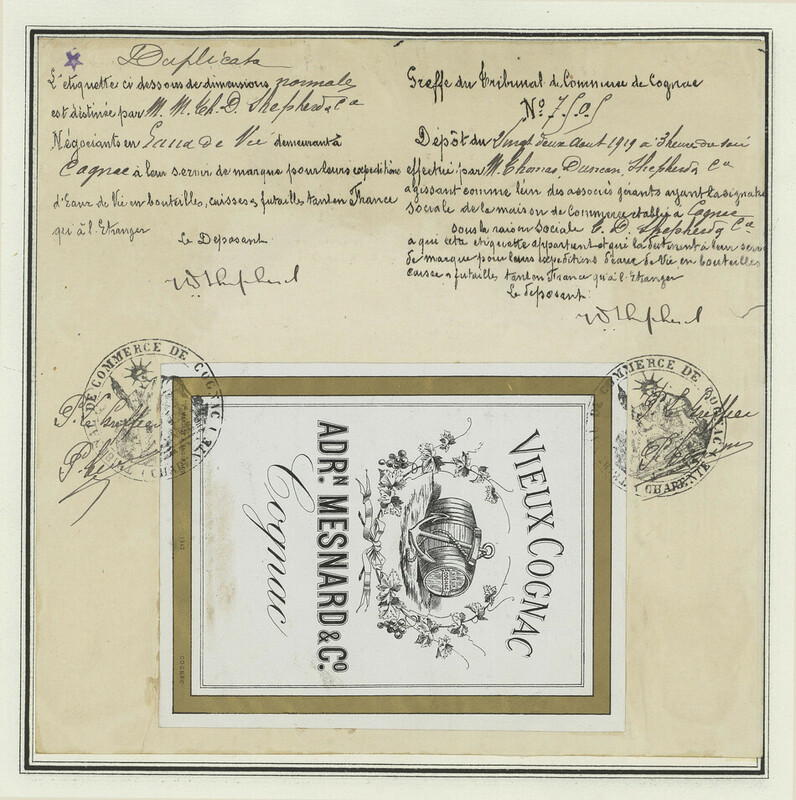 Duplicata
L'étiquette ci dessous de dimensions normale
est destinée par M. M. Th. D. Shepherd & Cª
Négociants en Eaux de Vie demeurant à
Cognac à leur servir de marque pour leurs expéditions
d'Eaux de Vie en bouteilles, caisses, futailles tant en France
qu'à l'Etranger
Le Déposant
Greffe du Tribunal de Commerce de Cognac
Nº 7.505
Dépôt du Vingt deux Aout 1919 à 3 heure du soir
effectué par M. Thomas, Duncan, Shepherd & Cª
agissant comme l'un des associés gérants ayant la signature
sociale de la maison de Commerce établie à Cognac
sous la raison sociale T. D. Shepherd & Cª
à qui cette étiquette appartient et qui la destinent à leur servir
de marque pour leurs expéditions d'eaux de Vie en bouteilles
caisses & futailles tant en France qu'à l'Etranger
Le déposant:
DE COMMERCE DE COGNAC
CHARENTE
VIEUX COGNAC
COGNAC
ADRN MESNARD & Cº
Cognac
COGNAC